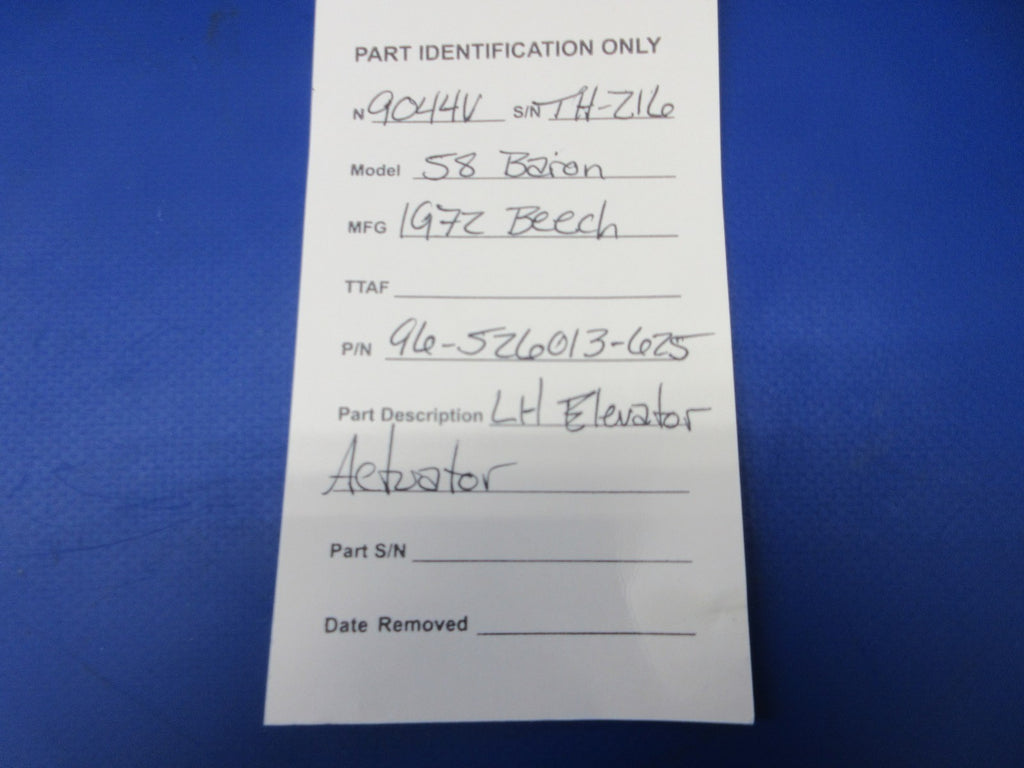 PART IDENTIFICATION ONLY
N 9044V S/N TH-216
Model 58 Baron
MFG 1972 Beech
TTAF
P/N 96-526013-625
Part Description LH Elevator
Actuator
Part S/N
Date Removed